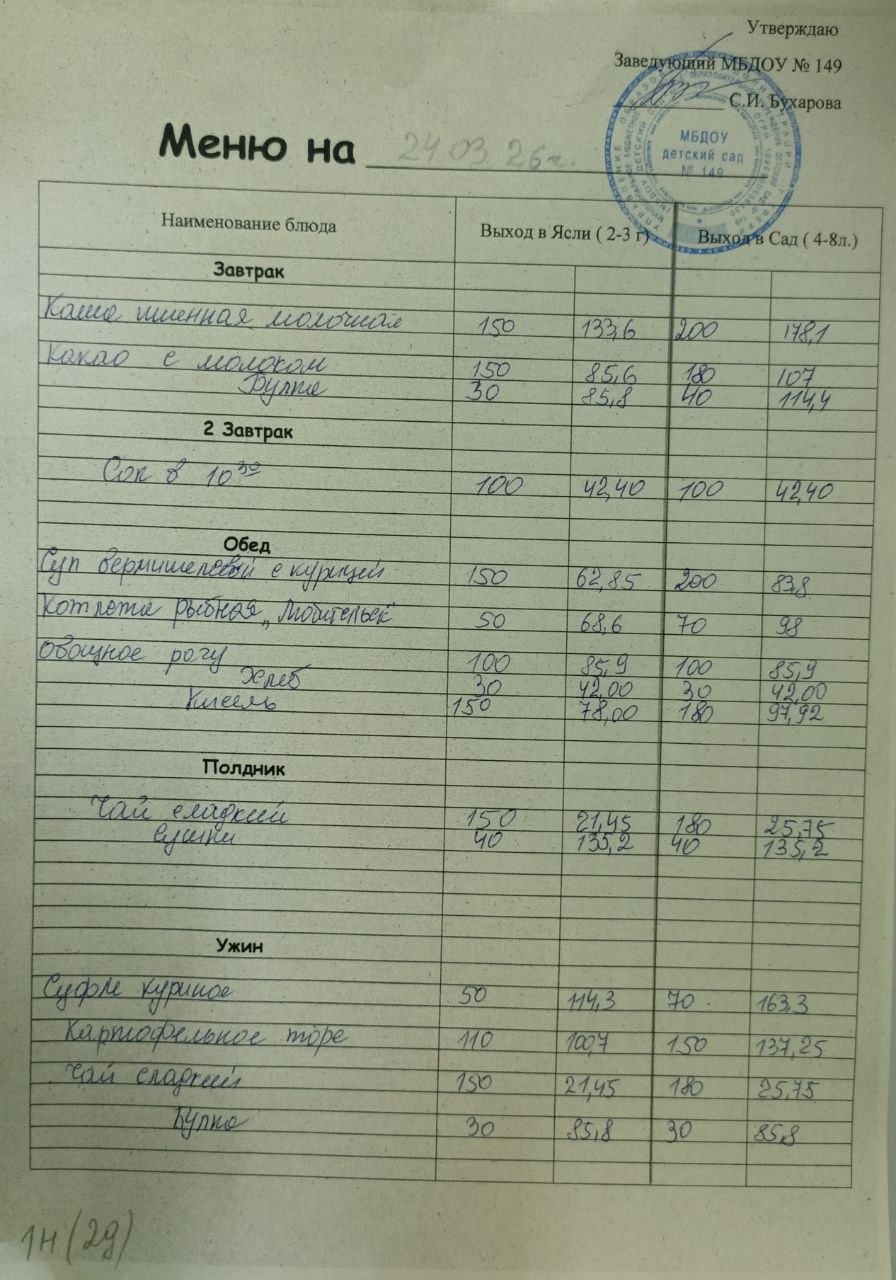 Утверждаю
Заведующий МБДОУ № 149
С.И. Бухарова
МБДОУ
детский сад
№ 149
Меню на 24.03.26г.
Наименование блюда Выход в Ясли ( 2-3 г) Выход в Сад ( 4-8л.)
Завтрак
Каша пшенная молочная 150 133,6 200 178,1
Какао с молоком 150 85,6 180 107
Булка 30 85,8 40 114,4
2 Завтрак
Сок в 10 30 100 42,40 100 42,40
Обед
Суп вермишелевый с курицей 150 62,85 200 83,8
Котлета рыбная "Любительск" 50 68,6 70 98
Овощное рагу 100 85,9 100 85,9
Хлеб 30 42,00 30 42,00
Кисель 150 78,00 180 97,92
Полдник
Чай сладкий 150 21,45 180 25,75
Сушки 40 135,2 40 135,2
Ужин
Суфле куриное 50 114,3 70 163,3
Картофельное пюре 110 100,7 150 137,25
Чай сладкий 150 21,45 180 25,75
Булка 30 85,8 30 85,8
1н (2д)